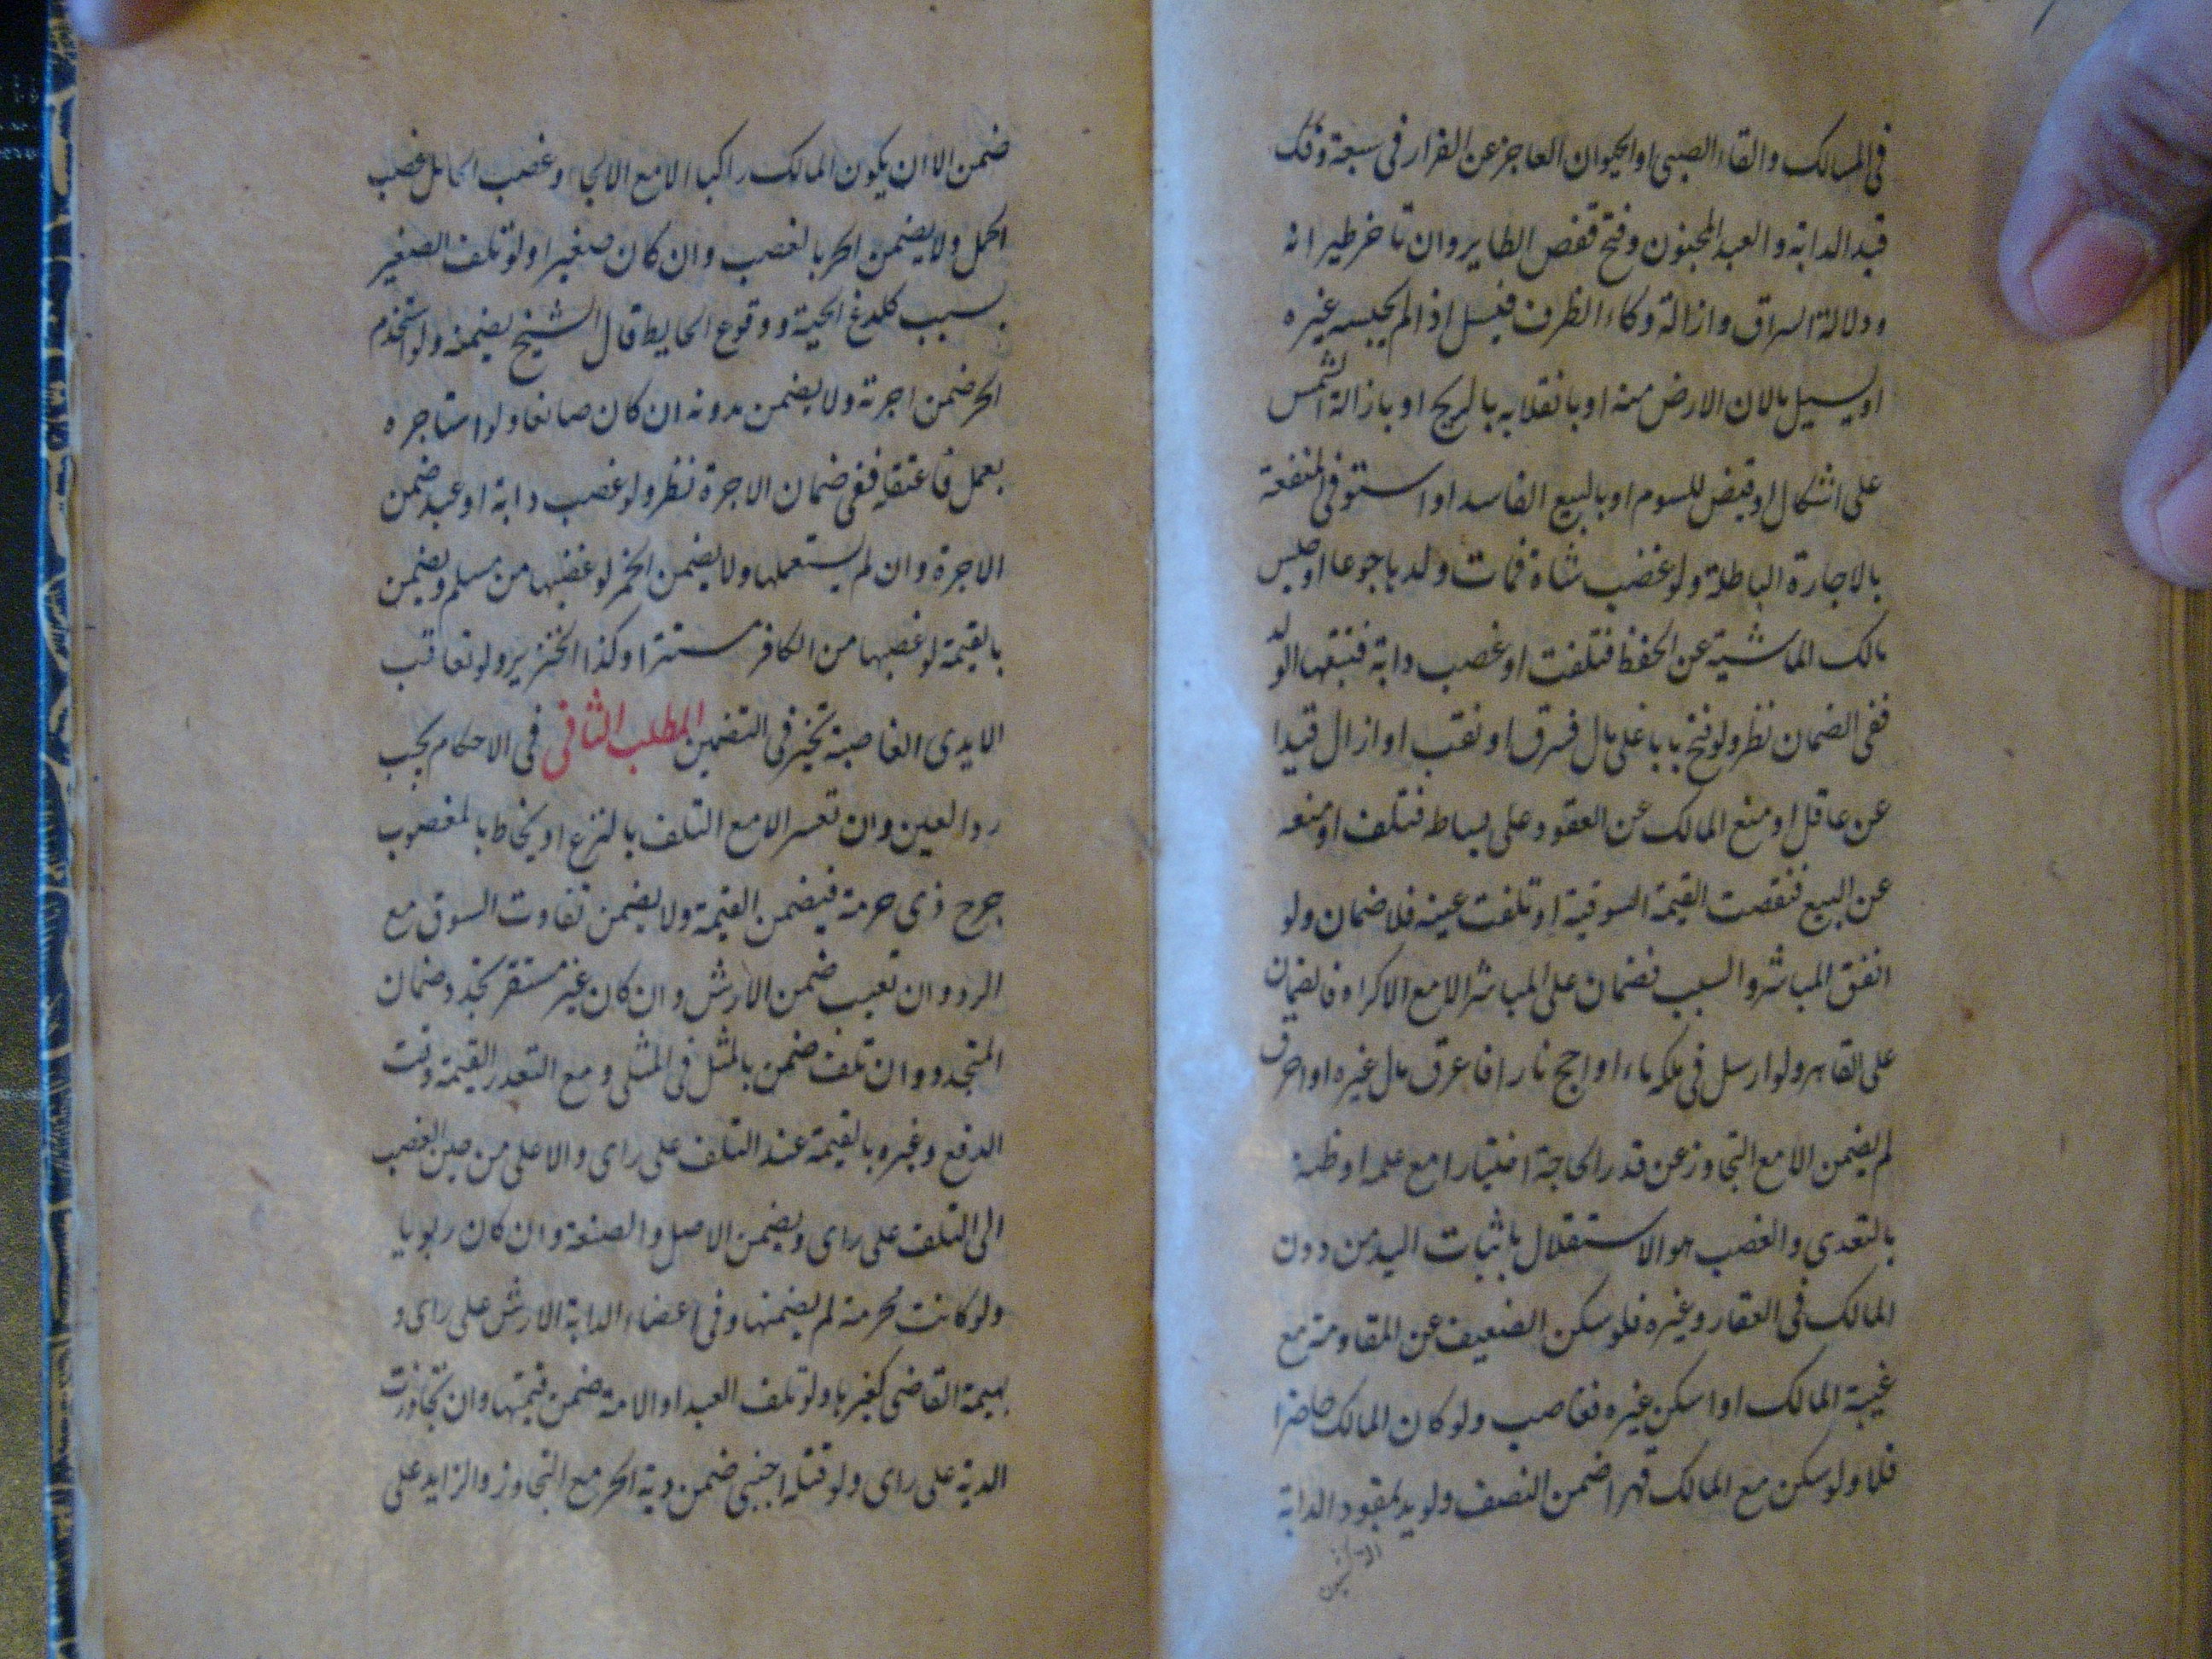 فى المسالك والقاء الصبى او الحيوان العاجز عن الفرار فى مسبعة وفك
قيد الدابة والعبد المجنون وفتح قفص الطاير وان تاخر طيرانه
ودلالة السراق وازالة وكاء الظرف فيسيل اذا لم يحبسه غيره
او يسيل بالان الارض منه او بانقلابه بالريح او باذالة الشمس
على اشكال او قبض للسوم او بالبيع الفاسد او استوفى المنفعة
بالاجارة الباطلة ولو غصب شاة فمات ولدها جوعا او حبس
مالك الماشية عن الحفظ فتلفت او غصب دابة فتبعها الولد
ففى الضمان نظر ولو فتح بابا على مال فسرق او نقب او ازال قيدا
عن عاقل او منع المالك عن القعود على بساطه فتلف او منعه
عن البيع فنقصت القيمة السوقية او تلفت عينه فلا ضمان ولو
اتفق المباشر والسبب فضمان على المباشر الا مع الاكراه فالضمان
على القاهر ولو ارسل فى ملكه ماء او اجج نارا فاغرق مال غيره او احرق
لم يضمن الا مع التجاوز عن قدر الحاجة اختيارا مع علمه او ظنه
بالتعدى والغصب هو الاستقلال باثبات اليد من دون
المالك فى العقار وغيره فلو سكن الضعيف عن المقاومة مع
غيبة المالك او اسكن غيره فغاصب ولو كان المالك حاضرا
فلا ولو سكن مع المالك قهرا ضمن النصف ولو يد بمقود الدابة
ضمن الا ان يكون المالك راكبا الا مع الالجاء وغصب الحامل غصب
الحمل ولا يضمن الحر بالغصب وان كان صغيرا ولو تلف الصغير
بسبب كلدغ الحية ووقوع الحايط قال الشيخ يضمنه ولو استخدم
الحر ضمن اجرته ولا يضمن بدونه ان كان صانعا ولو استاجره
بعمل فاعتقله ففى ضمان الاجرة نظر ولو غصب دابة او عبد ضمن
الاجرة وان لم يستعملها ولا يضمن الخمر لو غصبها من مسلم ويضمن
بالقيمة لو غصبها من الكافر مستترا وكذا الخنزير ولو تعاقب
الايدى الغاصبة تخير فى التضمين المطلب الثانى فى الاحكام يجب
رد العين وان تعسر الا مع التلف بالنزع او يخاط بالمغصوب
جرح ذى حرمة فيضمن القيمة ولا يضمن تفاوت السوق مع
الرد وان تعيب ضمن الارش وان كان غير مستقر تجدد ضمان
المتجدد وان تلف ضمن بالمثل فى المثلى ومع التعذر القيمة وقت
الدفع وغيره بالقيمة عند التلف على راى والاعلى من حين الغصب
الى التلف على راى ويضمن الاصل والصنعة وان كان ربويا
ولو كانت محرمة لم يضمنها وفى اعضاء الدابة الارش على راى و
بهيمة القاضى كغيرها ولو تلف العبد او الامة ضمن قيمتها وان تجاوزت
الدية على راى ولو قتله اجنبى ضمن دية الحر مع التجاوز والزايد على